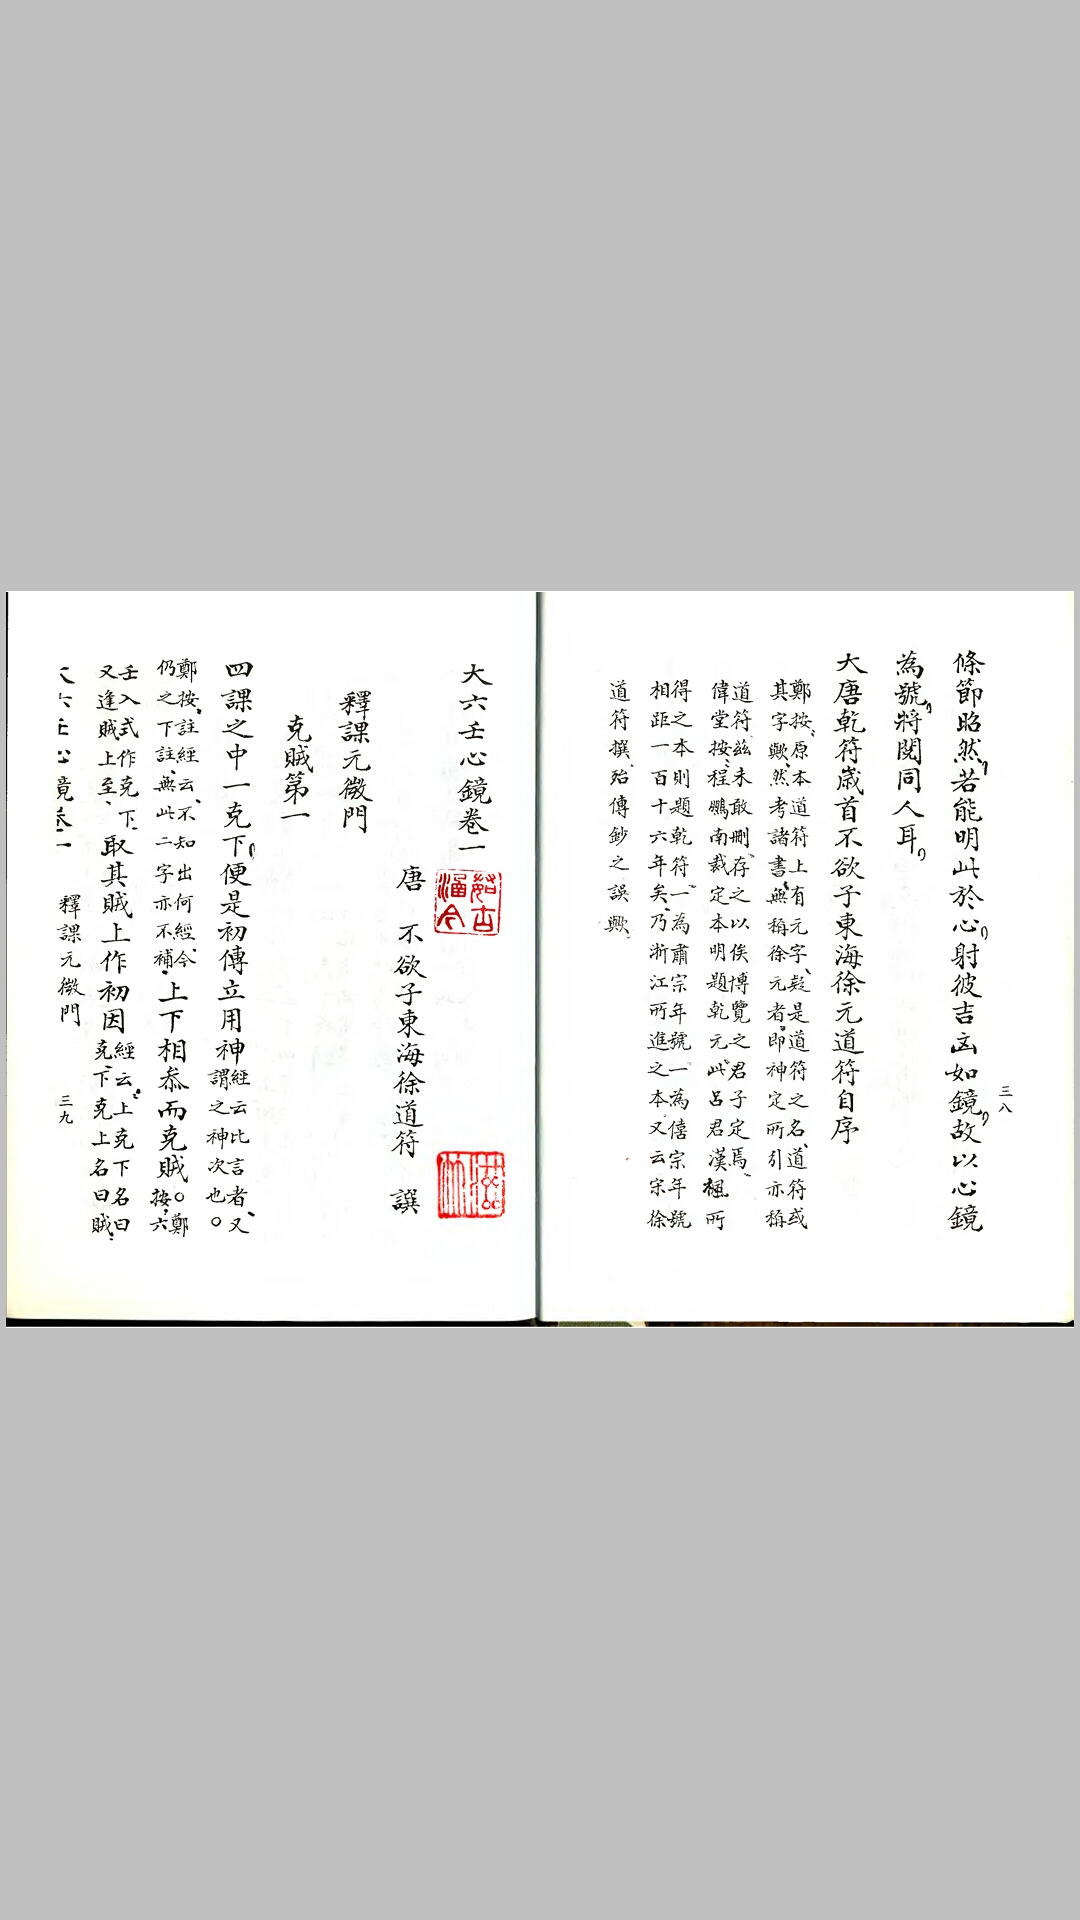 三八
條節昭然若能明此於心射彼吉凶如鏡故以心鏡
為號將閱同人耳
大唐乾符歲首不欲子東海徐元道符自序
鄭按原本道符上有元字疑是道符之名道符或
其字歟然考諸書無稱徐元者即神定所引亦稱
道符茲未敢刪存之以俟博覽之君子定焉
偉堂按程鵬南裁定本明題乾元此呂君漢楓所
得之本則題乾符一為肅宗年號一為僖宗年號
相距一百十六年矣乃浙江所進之本又云宋徐
道符撰殆傳鈔之誤歟
大六壬心鏡卷一
唐 不欲子東海徐道符 譔
釋課元微門
克賊第一
四課之中一克下便是初傳立用神
經云比言者又
謂之神次也
鄭按註經云不知出何經今
仍之下註無此二字亦不補
上下相叅而克賊
鄭
按六
壬入式作克下
又逢賊上至
取其賊上作初因
經云上克下名曰
克下克上名曰賊
大六壬心鏡卷一 釋課元微門 三九